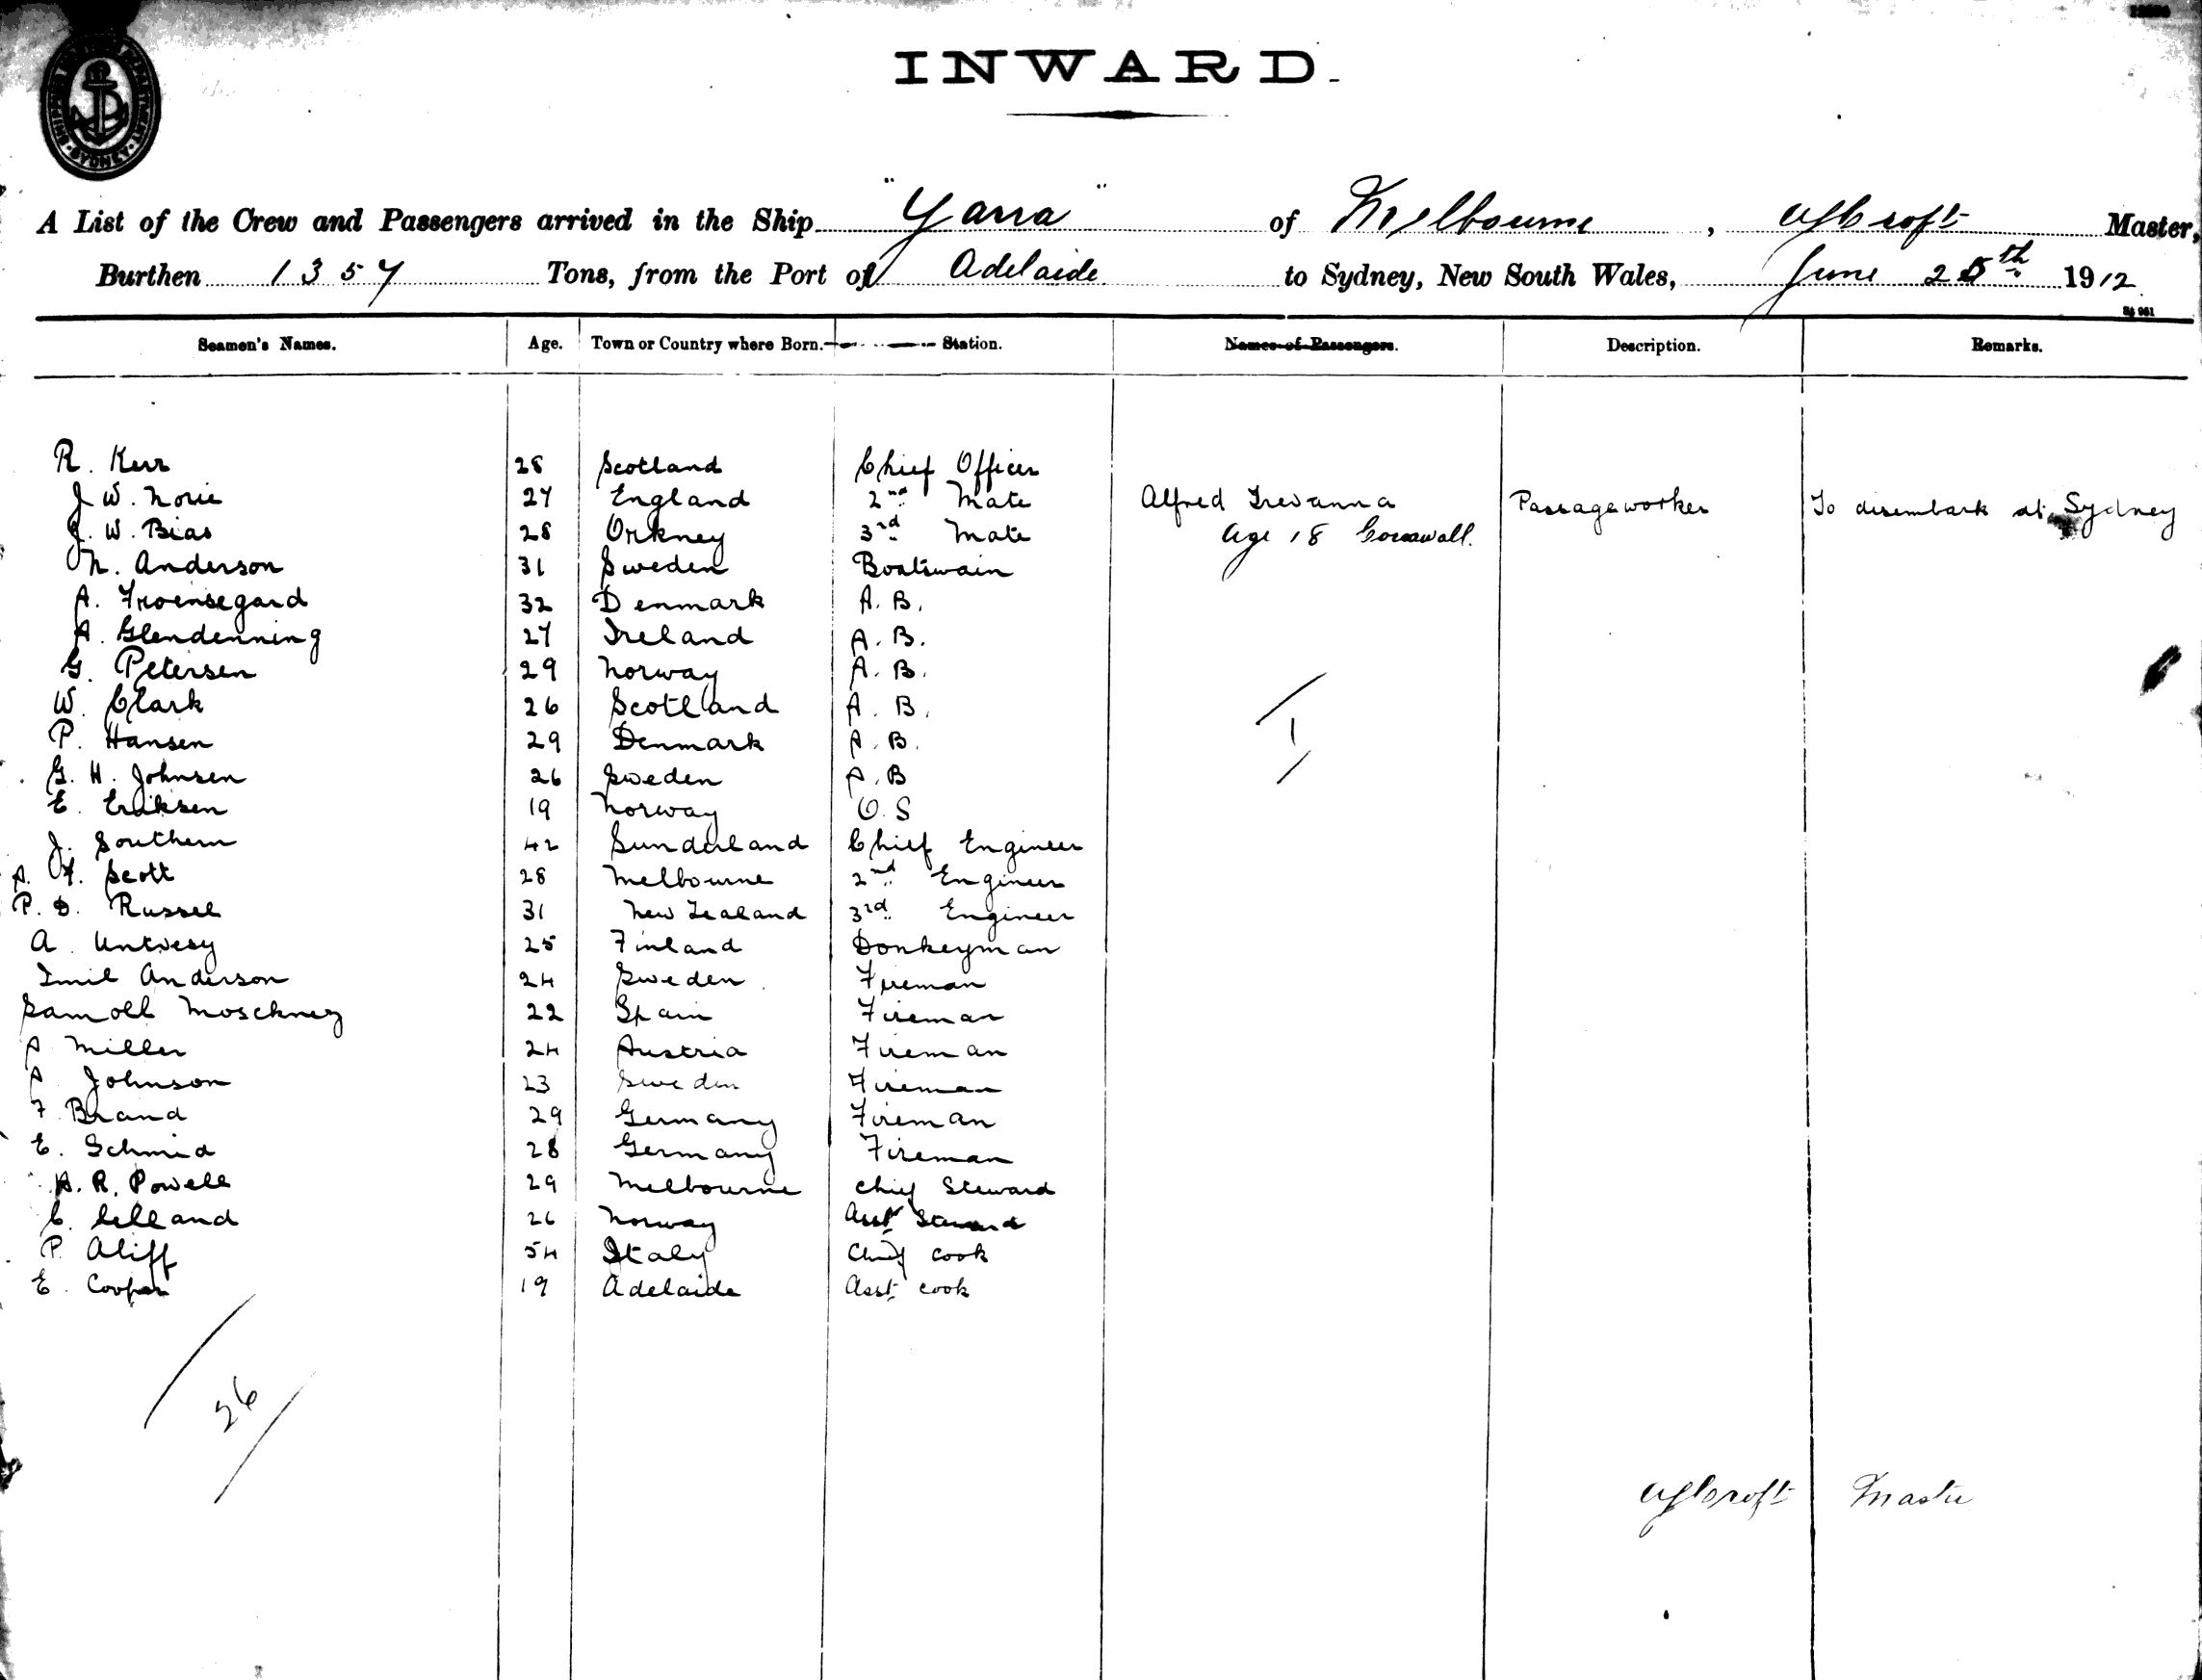 INWARD.
SYDNEY
A List of the Crew and Passengers arrived in the Ship "Yarra" of Melbourne, Master,
Burthen 1357 Tons, from the Port of Adelaide to Sydney, New South Wales, June 25th 1912
Seamen's Names. Age. Town or Country where Born. Station. Names of Passengers. Description. Remarks.
R. Kerr 28 Scotland Chief Officer
J W. Norie 27 England 2nd Mate Alfred Trevanna Passageworker To disembark at Sydney
J. W. Bias 28 Orkney 3rd Mate age 18 Cornwall.
N. Anderson 31 Sweden Boatswain
A. Froensegard 32 Denmark A. B.
A. Glendenning 27 Ireland A. B.
G. Petersen 29 Norway A. B.
W. Clark 26 Scotland A. B.
P. Hansen 29 Denmark A. B. 1
G. H. Johnsen 26 Sweden A. B
E. Eriksen 19 Norway O. S
J. Southern 42 Sunderland Chief Engineer
A. F. Scott 28 Melbourne 2nd Engineer
P. D. Russel 31 New Zealand 3rd Engineer
A 25 Finland Donkeyman
Imil Anderson 24 Sweden Fireman
Samoll 22 Spain Fireman
A Miller 24 Austria Fireman
A Johnson 23 Sweden Fireman
F. Brand 29 Germany Fireman
E. Schmid 28 Germany Fireman
A. R. Powell 29 Melbourne Chief Steward
C. 26 Norway Asst Steward
P. Aliff 54 Italy Chief cook
E. Cooper 19 Adelaide Asst cook
26
Master